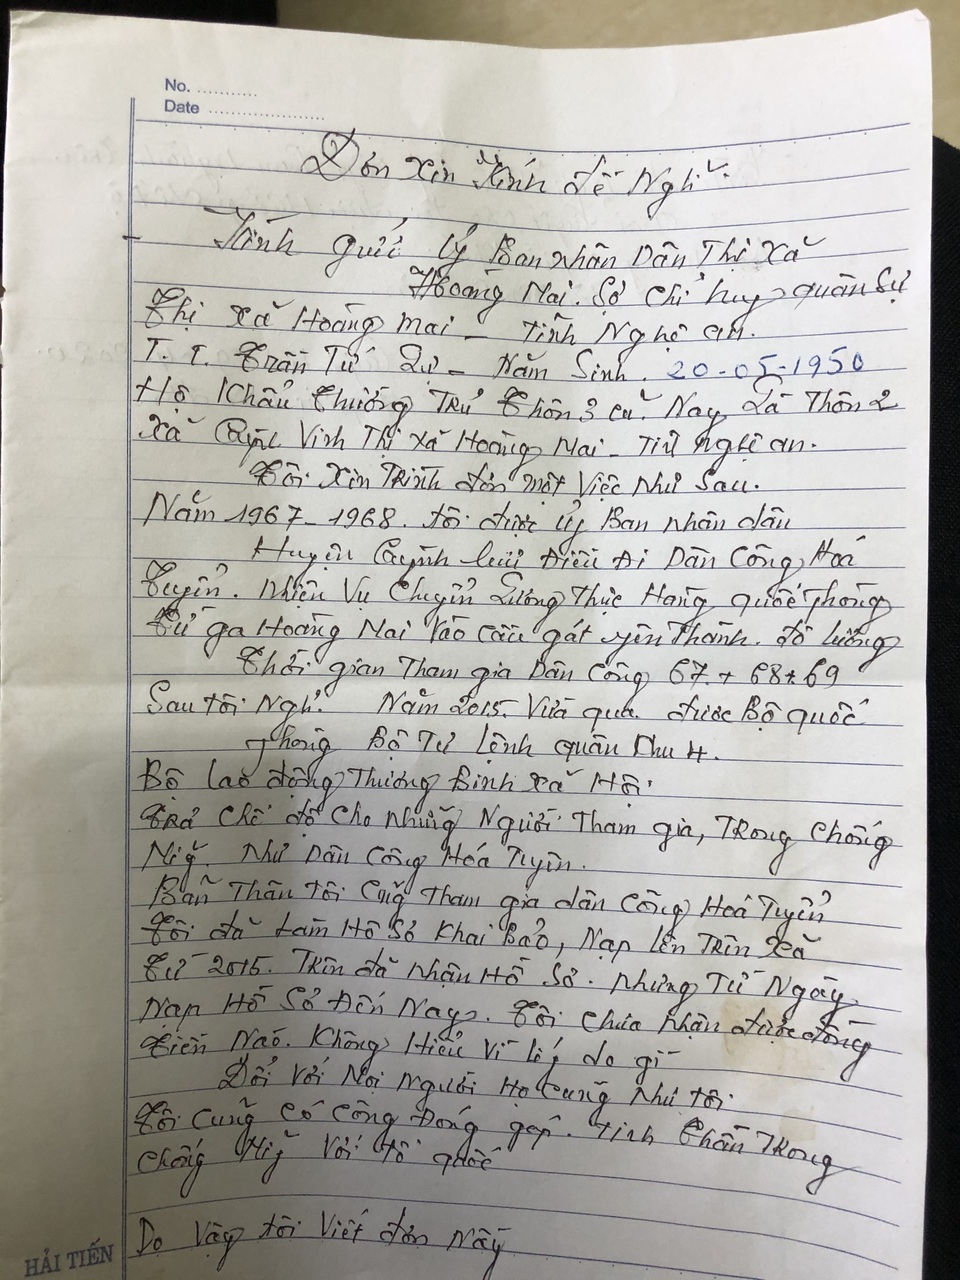 No. ...........
Date ......................
Đơn xin kính đề Nghị
Kính gửi Ủy Ban Nhân Dân Thị xã
Hoàng Mai. Sở chỉ huy quân sự
Thị xã Hoàng Mai - tỉnh Nghệ an.
T. T. Trần Tứ Sự - Năm Sinh. 20-05-1950
Hộ khẩu Thường Trú Thôn 3 cũ. Nay Là Thôn 2
Xã Quỳnh Vinh Thị xã Hoàng Mai - Tỉnh Nghệ an.
Tôi xin Trình đơn một Việc Như Sau.
Năm 1967-1968. tôi được ủy Ban nhân dân
Huyện Quỳnh lưu Điều Đi Dân Công Hoả
Tuyến. Nhiệm Vụ Chuyển Lương Thực Hàng quốc phòng
Từ ga Hoàng Mai Vào cầu gát yên Thành. đô lương
Thời gian Tham gia Dân Công 67 + 68 + 69
Sau tôi Nghỉ. Năm 2015. Vừa qua. được Bộ quốc
phòng Bộ Tư lệnh quân khu 4.
Bộ lao động Thương Binh xã Hội.
Trả chế độ cho những Người Tham gia, Trong chống
Mỹ. Như Dân Công Hoả Tuyến.
Bản Thân tôi Cũng Tham gia dân Công Hoả Tuyến
Tôi đã Làm Hồ Sơ Khai Báo, Nạp lên Trên xã
Từ 2015. Trên đã nhận Hồ Sơ. Nhưng Từ Ngày
Nạp Hồ Sơ Đến Nay. Tôi chưa nhận được đồng
tiền Nào. Không Hiểu Vì lý do gì
Đối Với Mọi Người Họ Cũng Như tôi.
Tôi Cũng Có Công Đóng góp. Tinh Thần Trong
chống Mỹ Với tổ quốc
Do Vậy tôi Viết đơn Này
HẢI TIẾN